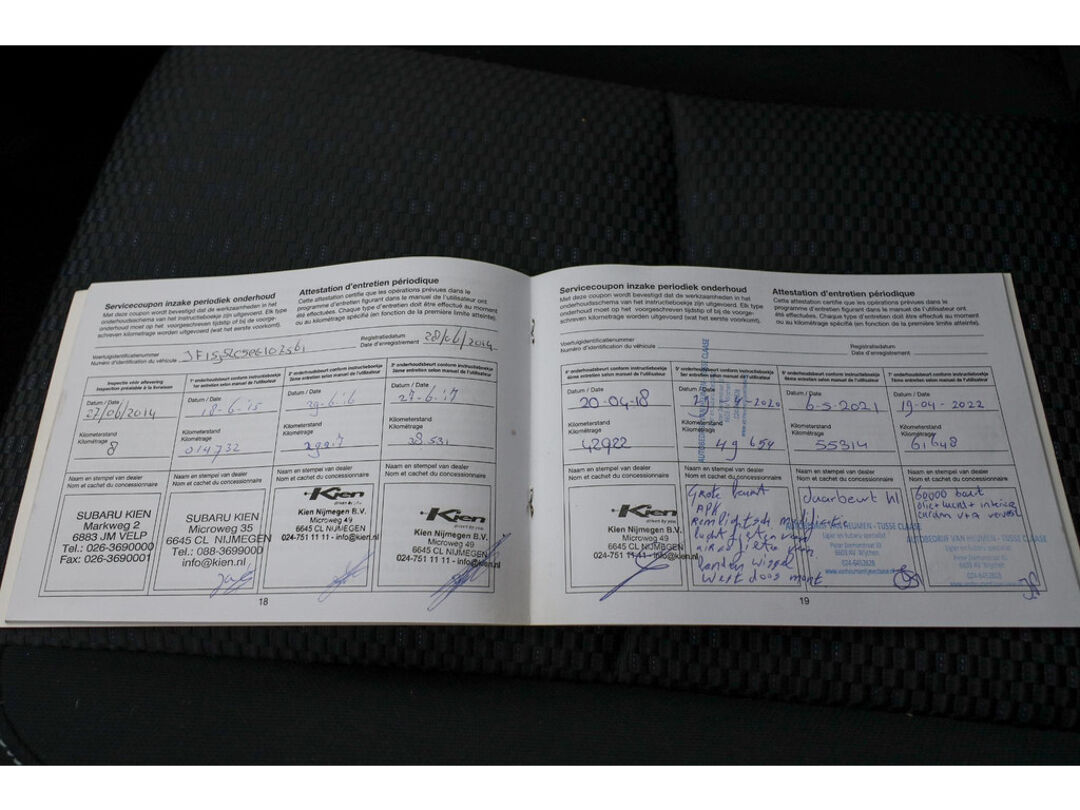 Servicecoupon inzake periodiek onderhoud
Met deze coupon wordt bevestigd dat de werkzaamheden in het
onderhoudsschema van het instructieboekje zijn uitgevoerd. Elk type
onderhoud moet op het voorgeschreven tijdstip of bij de voorge-
schreven kilometrage worden uitgevoerd (wat het eerste voorkomt).
Attestation d'entretien périodique
Cette attestation certifie que les opérations prévues dans le
programme d'entretien figurant dans le manuel de l'utilisateur ont
été effectuées. Chaque type d'entretien doit être effectué au moment
ou au kilométrage spécifié (en fonction de la première limite atteinte).
Voertuigidentificatienummer
Numéro d'identification du véhicule
Registratiedatum
Date d'enregistrement 28/06/2014
Inspectie vóór aflevering
Inspection préalable à la livraison
Datum / Date
27/06/2014
Kilometerstand
Kilométrage
8
Naam en stempel van dealer
Nom et cachet du concessionnaire
SUBARU KIEN
Markweg 2
6883 JM VELP
Tel.: 026-3690000
Fax: 026-3690001
1e onderhoudsbeurt conform instructieboekje
1er entretien selon manuel de l'utilisateur
Datum / Date
18-6-15
Kilometerstand
Kilométrage
014732
Naam en stempel van dealer
Nom et cachet du concessionnaire
SUBARU KIEN
Microweg 35
6645 CL NIJMEGEN
Tel.: 088-3699000
info@kien.nl
2e onderhoudsbeurt conform instructieboekje
2ème entretien selon manuel de l'utilisateur
Datum / Date
29-6-16
Kilometerstand
Kilométrage
Naam en stempel van dealer
Nom et cachet du concessionnaire
Kien
Kien Nijmegen B.V.
Microweg 49
6645 CL NIJMEGEN
024-751 11 11 - info@kien.nl
Datum / Date
27-6-17
Kilometerstand
Kilométrage
38531
Naam en stempel van dealer
Nom et cachet du concessionnaire
Kien
Kien Nijmegen B.V.
Microweg 49
6645 CL NIJMEGEN
024-751 11 11 - info@kien.nl
18
Servicecoupon inzake periodiek onderhoud
Met deze coupon wordt bevestigd dat de werkzaamheden in het
onderhoudsschema van het instructieboekje zijn uitgevoerd. Elk type
onderhoud moet op het voorgeschreven tijdstip of bij de voorge-
schreven kilometrage worden uitgevoerd (wat het eerste voorkomt).
Attestation d'entretien périodique
Cette attestation certifie que les opérations prévues dans le
programme d'entretien figurant dans le manuel de l'utilisateur ont
été effectuées. Chaque type d'entretien doit être effectué au moment
ou au kilométrage spécifié (en fonction de la première limite atteinte).
Voertuigidentificatienummer
Numéro d'identification du véhicule
Registratiedatum
Date d'enregistrement
Datum / Date
20-04-18
Kilometerstand
Kilométrage
42922
Naam en stempel van dealer
Nom et cachet du concessionnaire
Kien
Kien Nijmegen B.V.
Microweg 49
6645 CL NIJMEGEN
024-751 11 11 - info@kien.nl
Datum / Date
2020
Kilometerstand
Kilométrage
49654
Naam en stempel van dealer
Nom et cachet du concessionnaire
Grote beurt
APK
Datum / Date
6-5-2021
Kilometerstand
Kilométrage
55314
Naam en stempel van dealer
Nom et cachet du concessionnaire
AUTOBEDRIJF VAN HEUMEN - TUSSE CLAASE
024-6452828
Datum / Date
19-04-2022
Kilometerstand
Kilométrage
61648
Naam en stempel van dealer
Nom et cachet du concessionnaire
60000 beurt
AUTOBEDRIJF VAN HEUMEN - TUSSE CLAASE
024-6452828
19